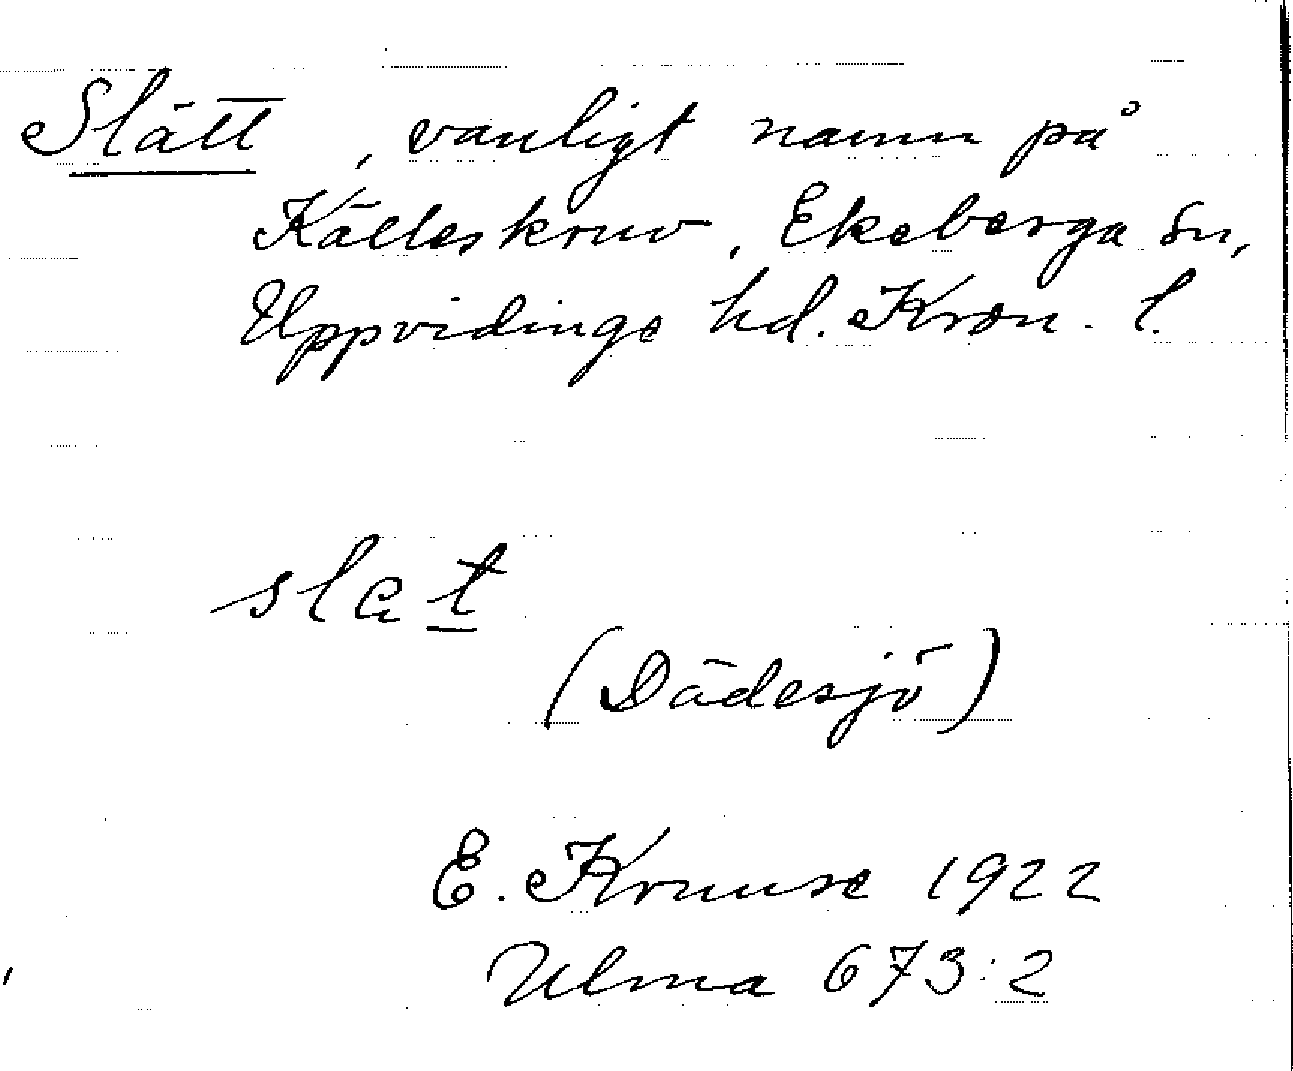 Slätt, vanligt namn på
Källeskruv, Ekeberga sn,
Uppvidinge hd. Kron. l.
slat
(Dädesjö)
E. Kruuse 1922
Ulma 673:2